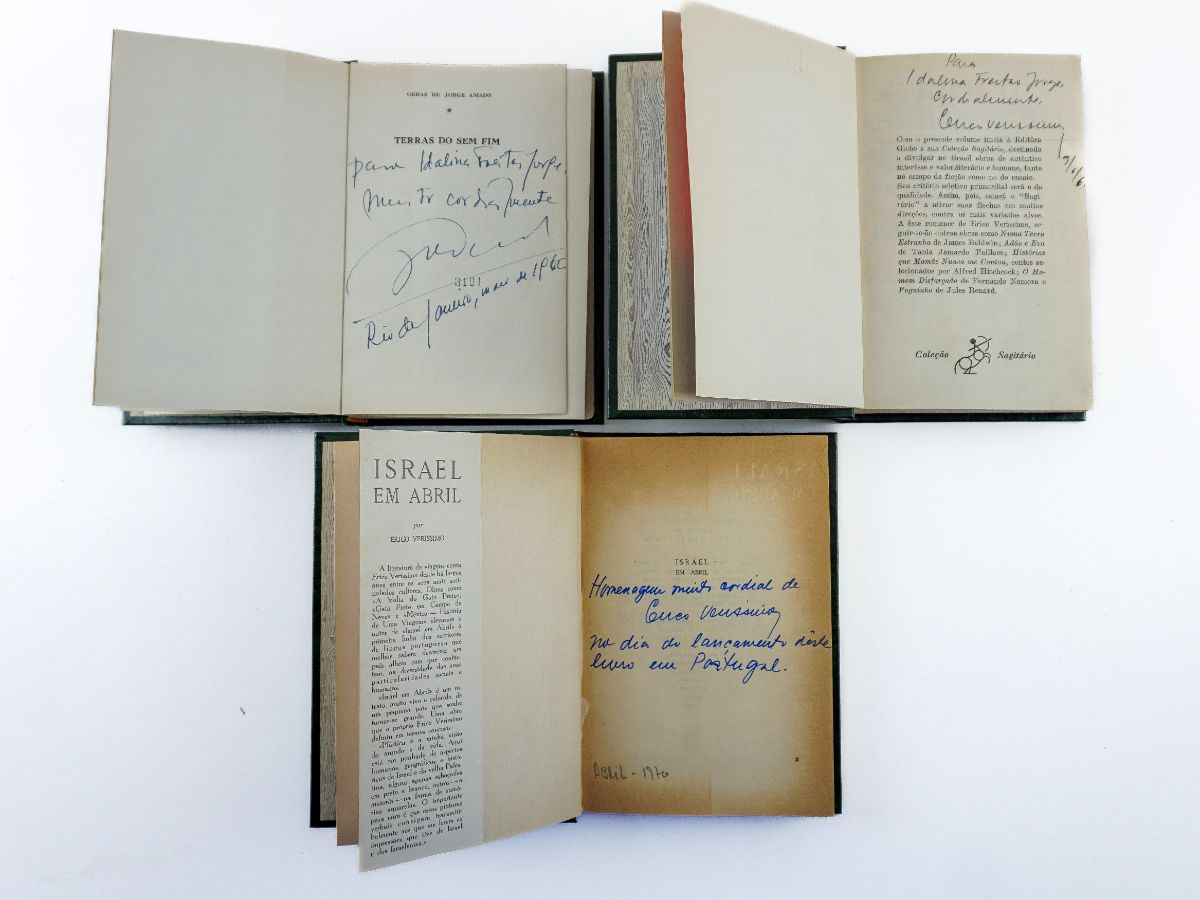 OBRAS DE JORGE AMADO
TERRAS DO SEM FIM
para Idalina Freitas Jorge,
muito cordialmente
3191
Rio de Janeiro, de 1966
Para
Idalina Freitas Jorge,
Cordialmente,
Erico Verissimo
Com o presente volume inicia a Editôra
Globo a sua Coleção Sagitário, destinada
a divulgar no Brasil obras de autêntico
interêsse e valor literário e humano, tanto
no campo da ficção como no do ensaio.
Seu critério seletivo primordial será o da
qualidade. Assim, pois, estará o "Sagi-
tário" a atirar suas flechas em muitas
direções, contra os mais variados alvos.
A êste romance de Erico Verissimo, se-
guir-se-ão outras obras como Numa Terra
Estranha de James Baldwin; Adão e Eva
de Tania Jamardo Faillace; Histórias
que Mamãe Nunca me Contou, contos se-
lecionados por Alfred Hitchcock; O Ho-
mem Disfarçado de Fernando Namora e
Foguinho de Jules Renard.
Coleção Sagitário
ISRAEL
EM ABRIL
por
ERICO VERÍSSIMO
A literatura de viagens conta
Erico Veríssimo desde há largos
anos entre os seus mais assi-
nalados cultores. Obras como
«A Volta do Gato Preto»,
«Gato Preto em Campo de
Neve» e «México — História
de Uma Viagem» elevaram o
autor de «Israel em Abril» à
primeira linha dos escritores
de língua portuguesa que
melhor sabem descrever um
país alheio com que contac-
tam, na diversidade das suas
particularidades sociais e
humanas.
«Israel em Abril» é um re-
trato, muito vivo e colorido, de
um pequeno país que soube
tornar-se grande. Uma obra
que o próprio Erico Veríssimo
definiu em termos concisos:
do mundo e da vida. Aqui
está um punhado de aspectos
humanos, geográficos e histó-
ricos de Israel e da velha Pales-
tina, alguns apenas esboçados
em preto e branco, outros — a
maioria — na forma de sumá-
rias aquarelas. O importante
para mim é que essas pinturas
verbais consigam transmitir
fielmente aos que me lerem as
impressões que tive de Israel
e dos Israelenses.»
ISRAEL
EM ABRIL
Homenagem muito cordial de
Erico Verissimo
no dia do lançamento dêste
livro em Portugal.
ABRIL - 1970